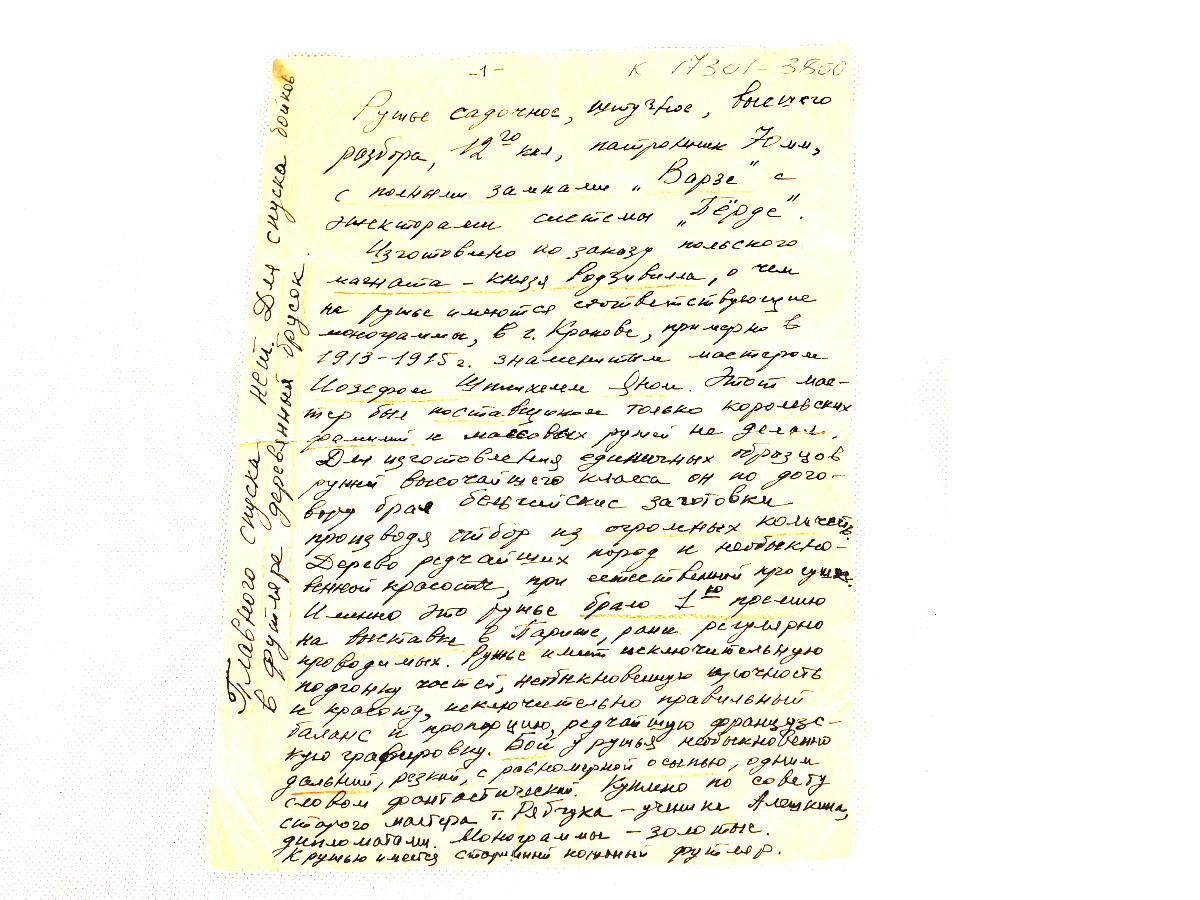 -1-
К 17301-3800
Ружье садочное, штучное, высшего
разбора, 12го кал, патронник 70мм,
с полными замками „Варзе" с
эжекторами системы „Бёрде".
Изготовлено по заказу польского
магната - князя Радзивилла, о чем
на ружье имеются соответствующие
монограммы, в г. Кракове, примерно в
1913-1915 г. знаменитым мастером
Иозефом
Этот мас-
тер был поставщиком только королевских
фамилий и массовых ружей не делал.
Для изготовления единичных образцов
ружей высочайшего класса он по дого-
вору брал бельгийские заготовки
производя отбор из огромных количеств.
Дерево редчайших пород и необыкно-
венной красоты, при естественной просушке.
Именно это ружье брало 1ю премию
на выставке в Париже, ранее регулярно
проводимых. Ружье имеет исключительную
подгонку частей, необыкновенную прочность
и красоту, исключительно правильный
баланс и пропорцию, редчайшую французс-
кую гравировку. Бой у ружья необыкновенно
дальний, резкий, с равномерной осыпью, одним
словом фантастический. Куплено по совету
старого мастера т. Рябчука - ученика Алешкина,
дипломатам. Монограммы - золотые.
К ружью имеется старинный кожаный футляр.
Главного спуска нет. Для спуска бойков
в футляре деревянный брусок.